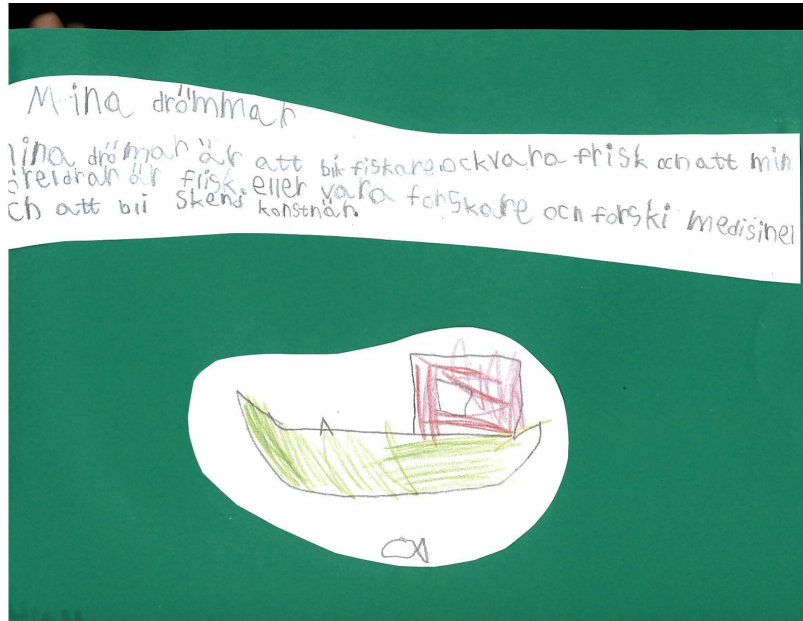 Mina drömmar
ina drömar är att bli fiskare ock vara frisk och att min
öreldrar är frisk. eller vara forskare och forski medisinel
ch att bli skend konstnär.